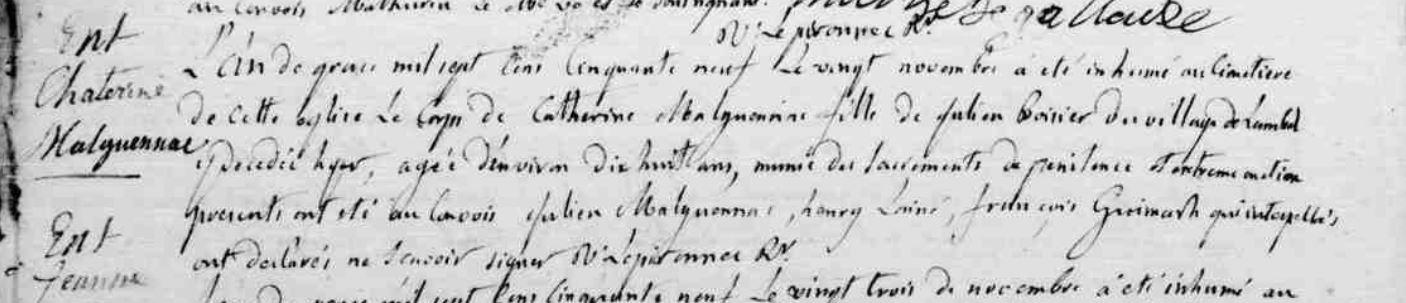 au Convois Mathurin Le
Le peronnec Rr.
Ent
Chaterine
Malguennac
L'An de grace mil sept Cens Cinquante neuf Le vingt novembre à été inhumé au Cimetiere
de Cette eglise Le Corps de Catherine Malguennac fille de Julien Boisier du village de Lambel
y decedée hyer, agée d'environ dix huit ans, munie des Sacrements de penitence d'extreme onction
presents ont été au Convois Julien Malguennac, henry Lainé, françois Groimarh qui interpellés
ont declarés ne Scavoir signer Le peronnec Rr.
Ent
Jeanne
L'an de grace mil sept Cens Cinquante neuf Le vingt trois de novembre à été inhumé au